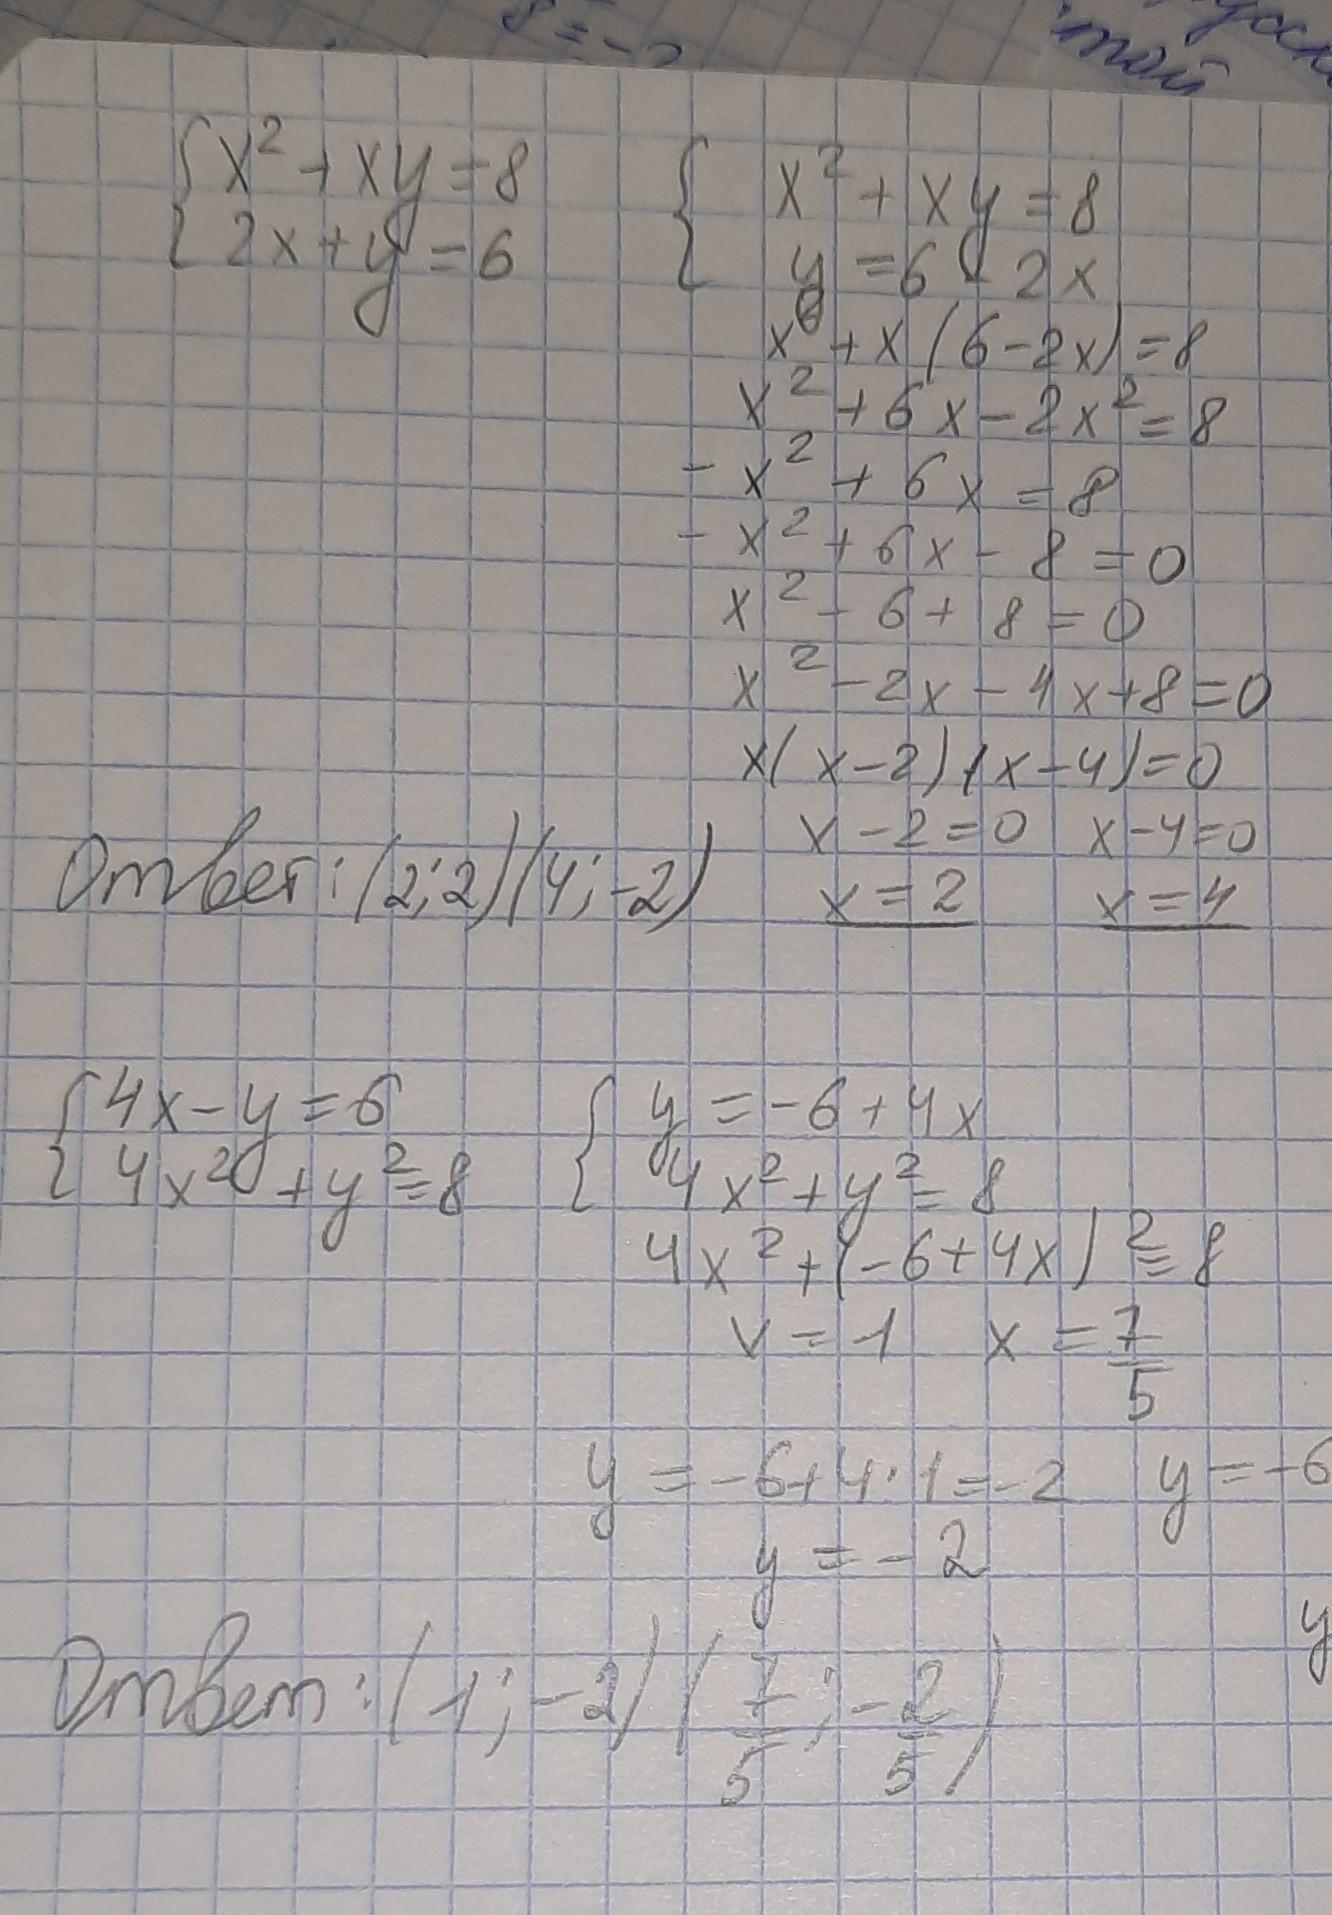 8 = -2
той
{ x² + xy = 8
2x + y = 6
{ x² + xy = 8
y = 6 - 2x
x² + x(6 - 2x) = 8
x² + 6x - 2x² = 8
- x² + 6x = 8
- x² + 6x - 8 = 0
x² - 6 + 8 = 0
x² - 2x - 4x + 8 = 0
x(x - 2)(x - 4) = 0
x - 2 = 0 x - 4 = 0
x = 2 x = 4
Ответ: (2; 2) (4; -2)
{ 4x - y = 6
4x² + y² = 8
{ y = -6 + 4x
4x² + y² = 8
4x² + (-6 + 4x)² = 8
x = 1 x = 7/5
y = -6 + 4 · 1 = -2 y = -6
y = -2 y
Ответ: (1; -2) (7/5; -2/5)